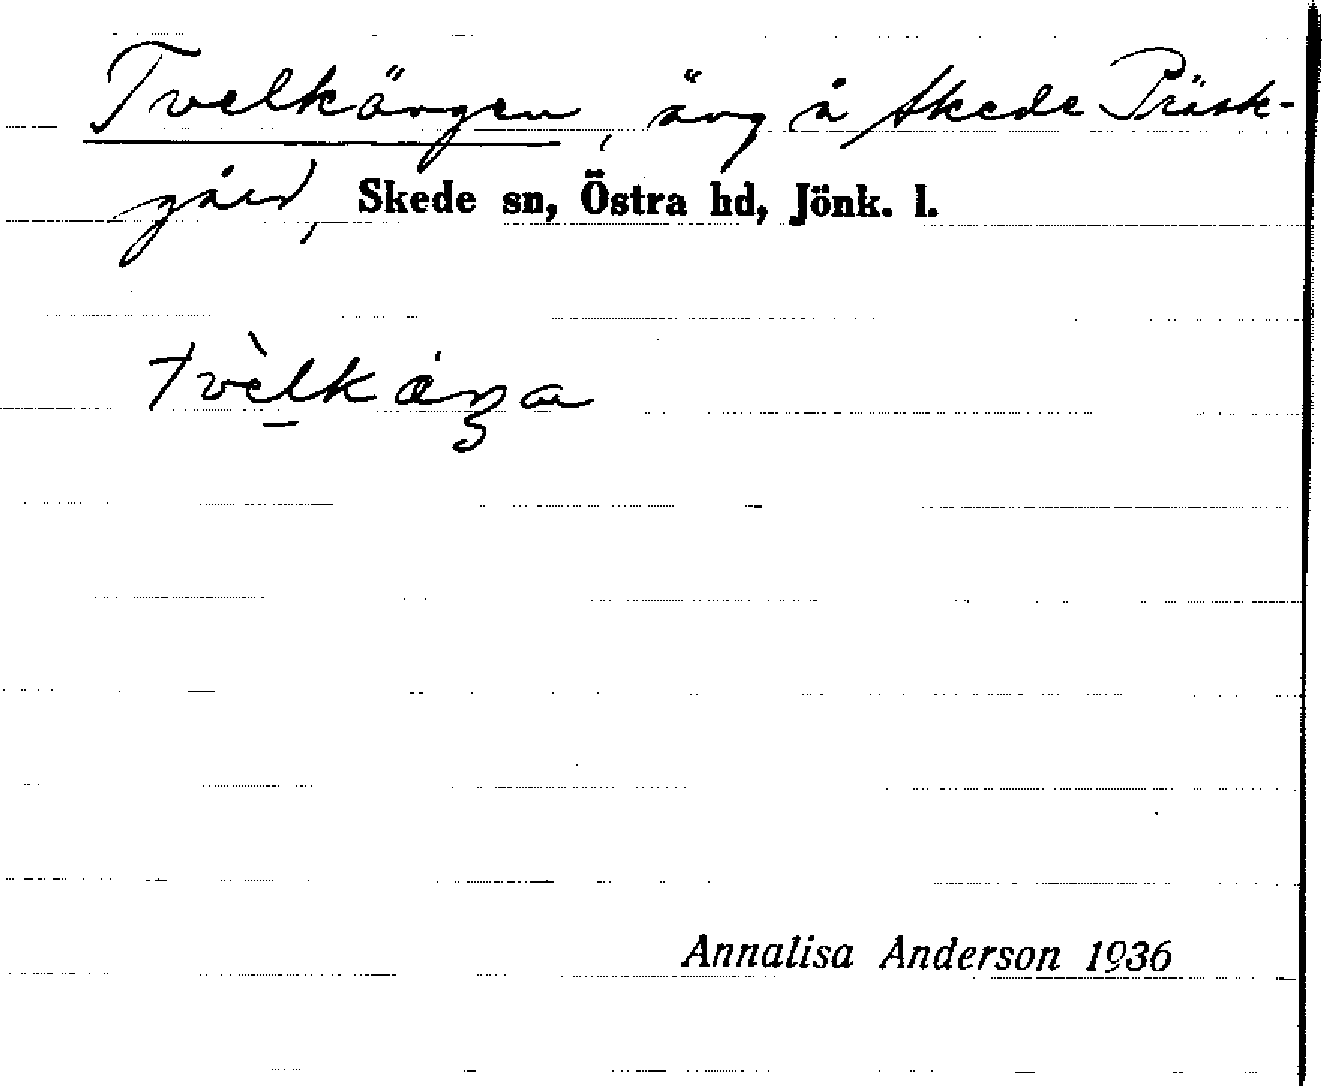 Tvelkängen, äng å Skede Präst-
gård, Skede sn, Östra hd, Jönk. l.
Annalisa Anderson 1936